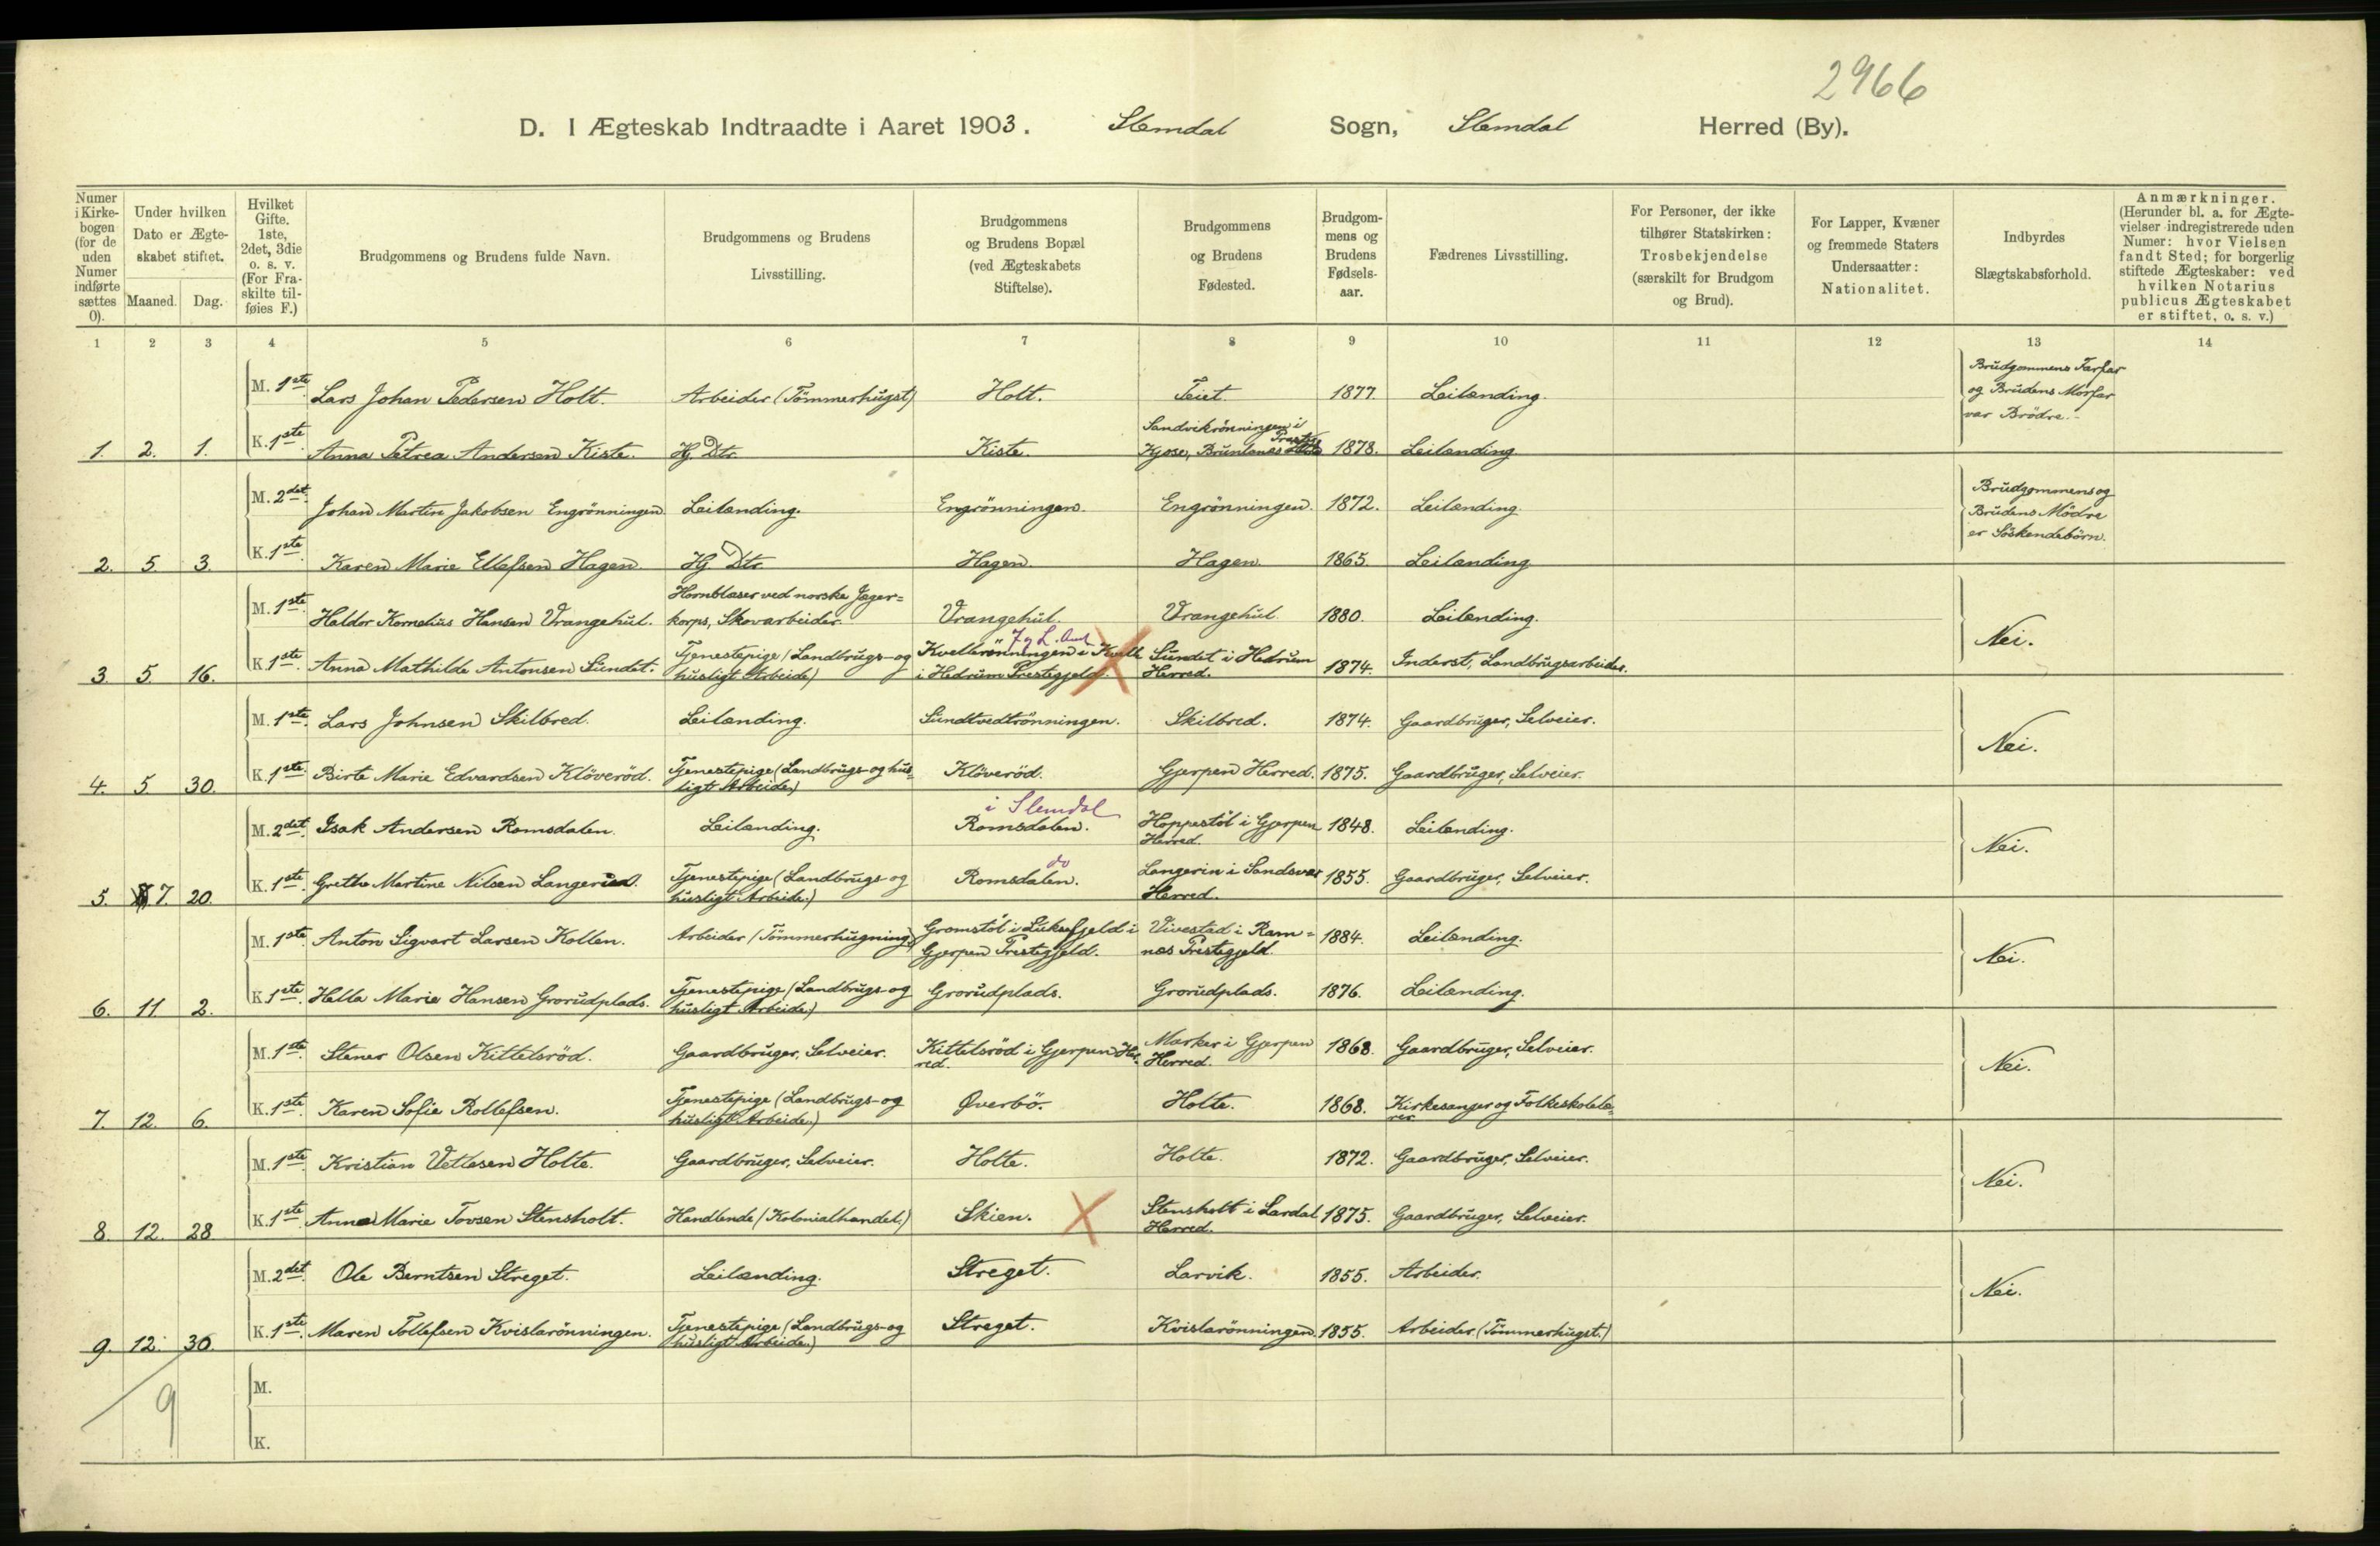 2966
D. I Ægteskab Indtraadte i Aaret 1903. Slemdal Sogn, Slemdal Herred (By).
Numer i Kirkebogen (for de uden Numer indførte sættes 0).
Under hvilken Dato er Ægteskabet stiftet.
Maaned. Dag.
Hvilket Gifte. 1ste, 2det, 3die o. s. v. (For Fraskilte tilføies F.)
Brudgommens og Brudens fulde Navn.
Brudgommens og Brudens Livsstilling.
Brudgommens og Brudens Bopæl (ved Ægteskabets Stiftelse).
Brudgommens og Brudens Fødested.
Brudgommens og Brudens Fødselsaar.
Fædrenes Livsstilling.
For Personer, der ikke tilhører Statskirken: Trosbekjendelse (særskilt for Brudgom og Brud).
For Lapper, Kvæner og fremmede Staters Undersaatter: Nationalitet.
Indbyrdes Slægtskabsforhold.
Anmærkninger. (Herunder bl. a. for Ægtevielser indregistrerede uden Numer: hvor Vielsen fandt Sted; for borgerlig stiftede Ægteskaber: ved hvilken Notarius publicus Ægteskabet er stiftet, o. s. v.)
1 2 3 4 5 6 7 8 9 10 11 12 13 14
M. 1ste Lars Johan Pedersen Holt. Arbeider (Tömmerhugst) Holt. Teiet. 1877. Leilænding. Brudgommens Farfar og Brudens Morfar var Brödre.
1. 2. 1. K. 1ste Anna Petrea Andersen Kiste. Hj Dtr. Kiste. Sandvikrönningen i Kjose, Brunlanes 1878. Leilænding
M. 2det Johan Martin Jakobsen Engrönningen Leilænding. Engrönningen. Engrönningen. 1872. Leilænding Brudgommens og Brudens Mödre er Söskendebörn.
2. 5. 3. K. 1ste Karen Marie Ellefsen Hagen Hj Dtr. Hagen. Hagen. 1865. Leilænding
M. 1ste Haldor Kornelius Hansen Vrangehul. Hornblæser ved norske Jægerkorps, Skovarbeider. Vrangehul. Vrangehul 1880. Leilænding. Nei.
J & L. Amt
3. 5. 16. K. 1ste Anna Mathilde Antonsen Sundet. Tjenestepige (Landbrugs- og husligt Arbeide) Kvellerönningen i Kvelle i Hedrum Prestegjeld. Sundet i Hedrum Herred. 1874. Inderst, Landbrugsarbeider.
M. 1ste Lars Johnsen Skilbred. Leilænding. Sundtvedtrönningen. Skilbred. 1874. Gaardbruger, Selveier. Nei.
4. 5. 30. K. 1ste Birte Marie Edvardsen Klöveröd. Tjenestepige (Landbrugs- og husligt Arbeide) Klöveröd. Gjerpen Herred. 1875. Gaardbruger, Selveier.
i Slemdal
M. 2det Isak Andersen Romsdalen. Leilænding. Romsdalen. Hoppestöl i Gjerpen Herred. 1848. Leilænding. Nei.
do
5. 7. 20. K. 1ste Grethe Martine Nilsen Langerud. Tjenestepige (Landbrugs- og husligt Arbeide.) Romsdalen. Langerin i Sandsvær Herred. 1855. Gaardbruger, Selveier.
M. 1ste Anton Sigvart Larsen Kollen. Arbeider (Tömmerhugning) Gromstöl i Luksefjeld i Gjerpen Prestegjeld. Vivestad i Ramnæs Prestegjeld. 1884. Leilænding. Nei.
6. 11. 2. K. 1ste Helle Marie Hansen Grorudplads. Tjenestepige (Landbrugs- og husligt Arbeide) Grorudplads. Grorudplads. 1876. Leilænding.
M. 1ste Stener Olsen Kittelsröd. Gaardbruger, Selveier. Kittelsröd i Gjerpen Herred. Marker i Gjerpen Herred. 1868. Gaardbruger, Selveier. Nei.
7. 12. 6. K. 1ste Karen Sofie Rollefsen. Tjenestepige (Landbrugs- og husligt Arbeide.) Øverbö. Holte. 1868. Kirkesanger og Folkeskolelærer
M. 1ste Kristian Vetlesen Holte. Gaardbruger, Selveier. Holte. Holte. 1872. Gaardbruger, Selveier. Nei.
8. 12. 28. K. 1ste Anne Marie Tovsen Stensholt. Handlende (Kolonialhandel.) Skien. Stensholt i Lardal Herred. 1875. Gaardbruger, Selveier.
M. 2det Ole Berntsen Streget. Leilænding. Streget. Larvik. 1855. Arbeider. Nei.
9. 12. 30. K. 1ste Maren Tollefsen Kvislarönningen. Tjenestepige (Landbrugs- og husligt Arbeide.) Streget. Kvislarönningen. 1855. Arbeider (Tömmerhugst.)
M.
9
K.